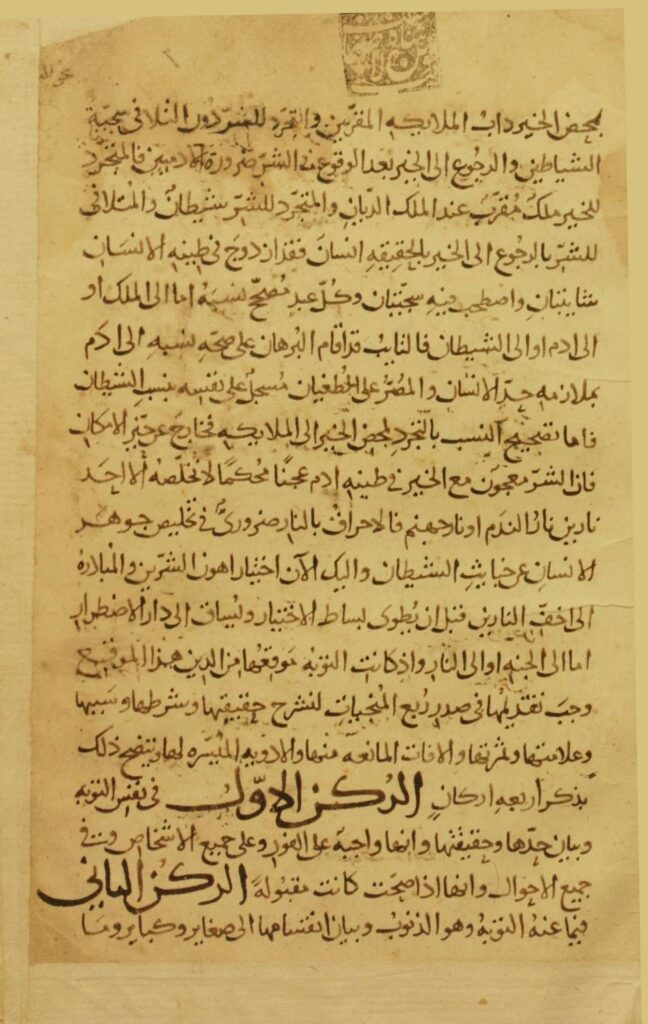 لمحض الخير داب الملايكه المقربين والتجرد للشر دون التلافي سجية
الشياطين والرجوع الى الخير بعد الوقوع في الشر ضرورة الادميين فالمتجرد
للخير ملك مقرب عند الملك الديان والمتجرد للشر شيطان والمتلافي
للشر بالرجوع الى الخير بالحقيقه انسان فقد ازدوج في طينه الانسان
شايبتان واصطحب فيه سجيتان وكل عبد مصحح نسبه اما الى الملك او
الى ادم او الى الشيطان فالتايب قد اقام البرهان على صحه نسبه الى ادم
بملازمه حد الانسان والمصر على الطغيان مسجل على نفسه بنسب الشيطان
فاما تصحيح النسب بالتجرد لمحض الخير الى الملايكه فخارج عن حيز الامكان
فان الشر معجون مع الخير في طينه ادم عجنا محكما لا تخلصه الا احد
نارين نار الندم او نار جهنم فالاحراق بالنار ضروري في تخليص جوهر
الانسان عن خبايث الشيطان واليك الآن اختيار اهون الشرين والمبادرة
الى اخف النارين قبل ان يطوى بساط الاختيار ويساق الى دار الاضطرار
اما الى الجنه او الى النار واذ كانت التوبه موقعها من الدين هذا الموقع
وجب تقديمها في صدر ربع المنجيات لنشرح حقيقتها وشرطها وسببها
وعلامتها وثمرتها والافات المانعه منها والادويه الميسره لها ويتضح ذلك
بذكر اربعه اركان الركن الاول في نفس التوبه
وبيان حدها وحقيقتها وانها واجبة على الفور وعلى جميع الاشخاص وفي
جميع الاحوال وانها اذا صحت كانت مقبولة الركن الثاني
فيما عنه التوبه وهو الذنوب وبيان انقسامها الى صغاير وكباير وما